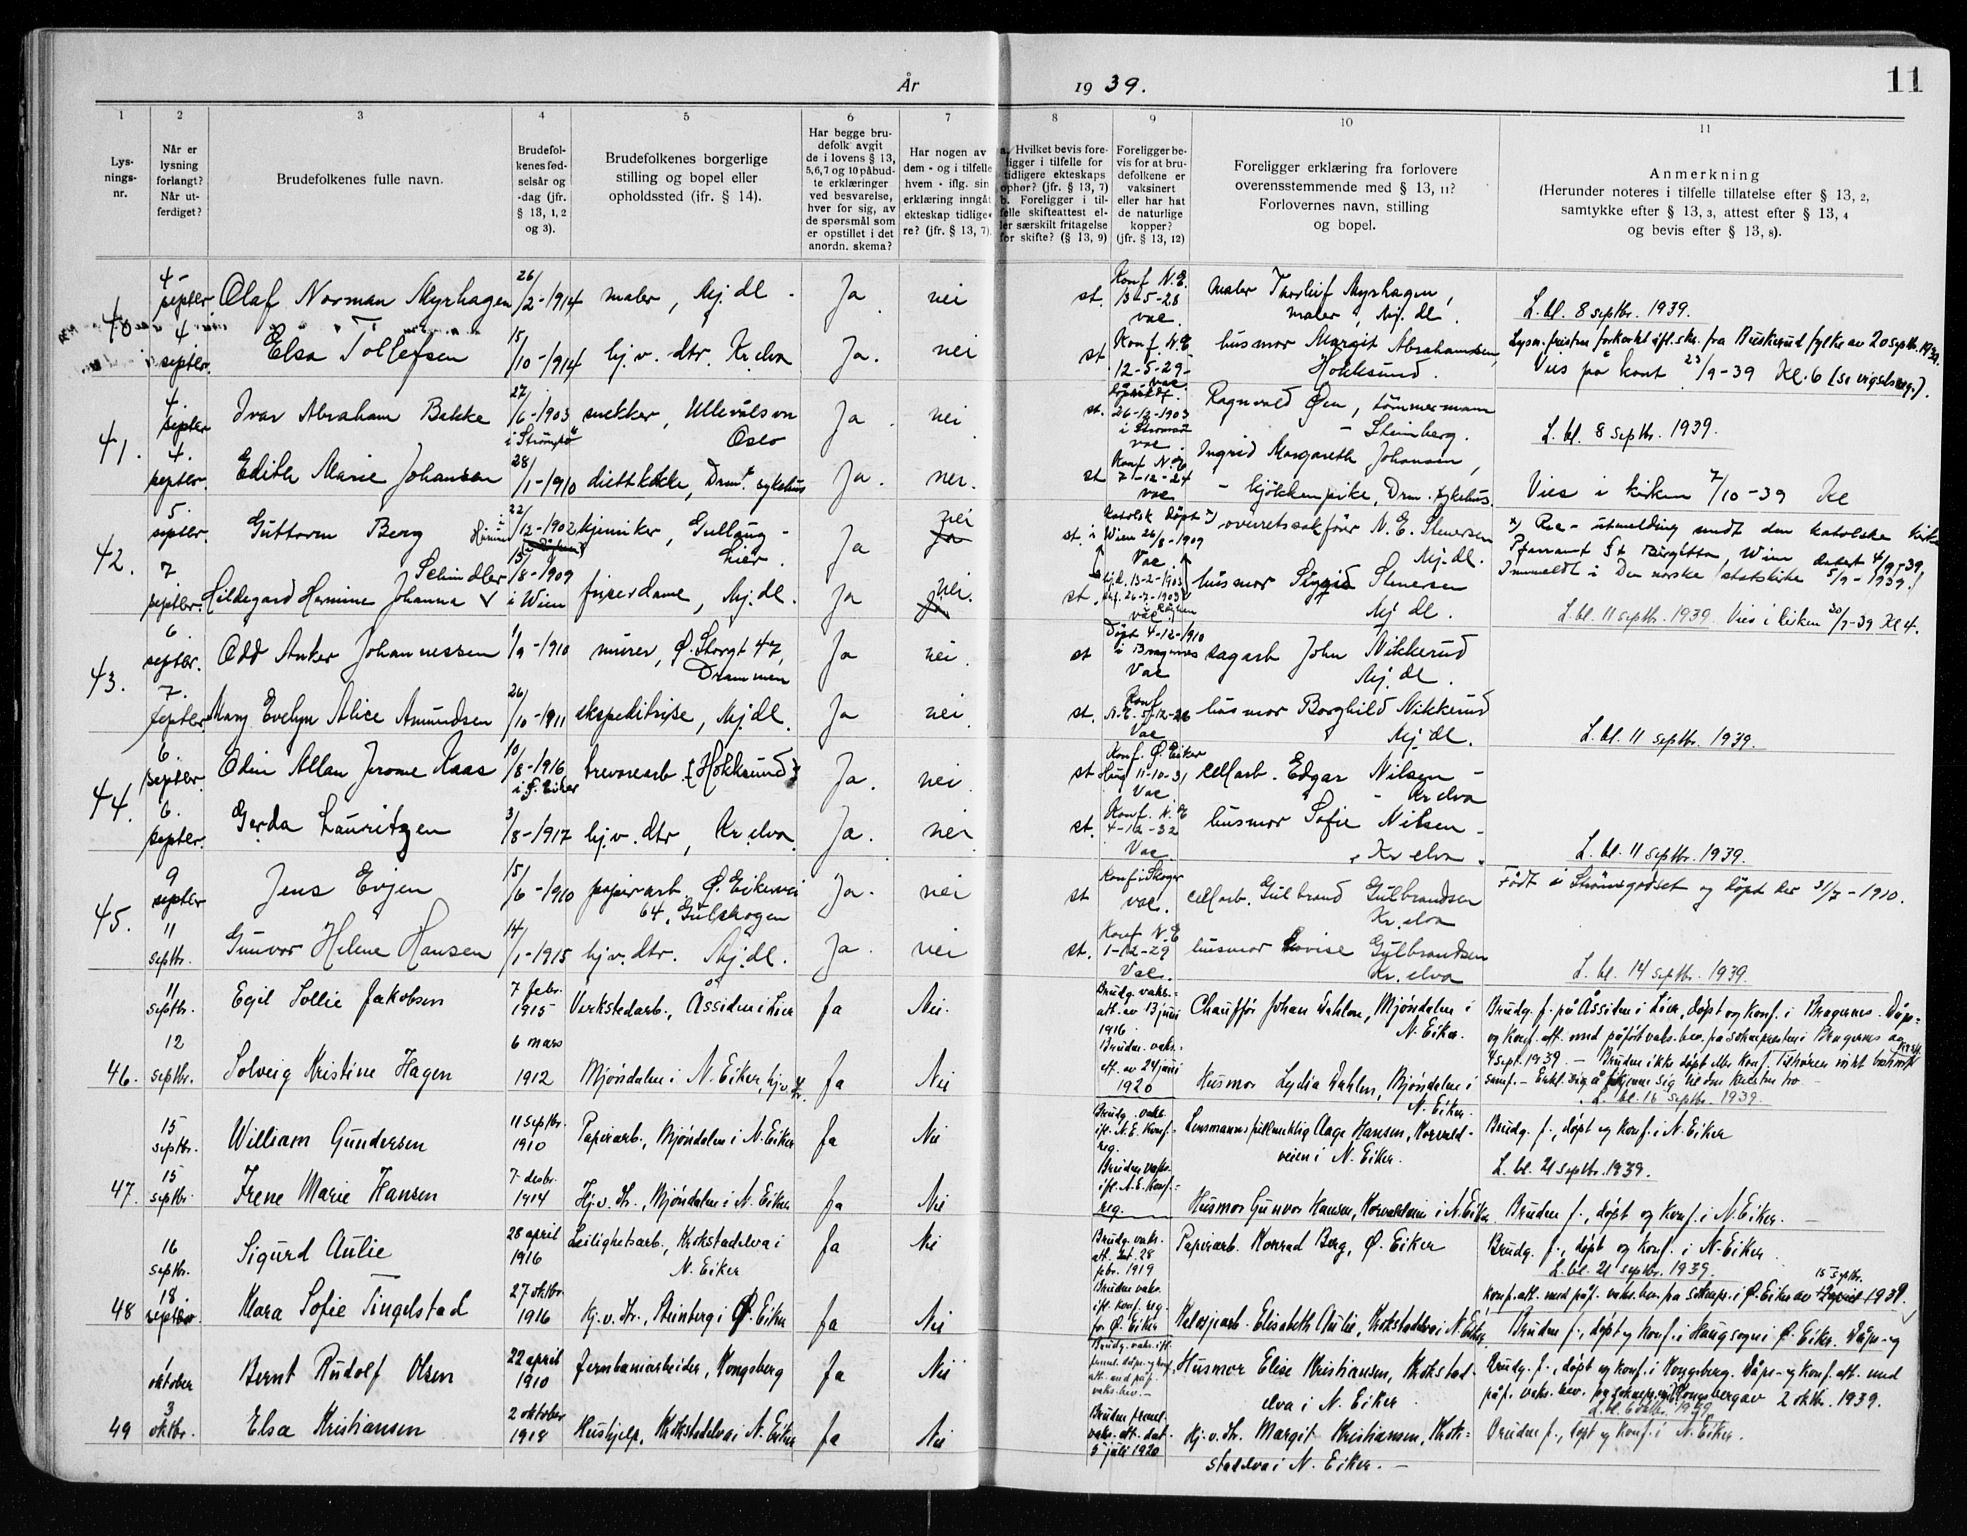 År 1939.
11
1
2
3
4
5
6
7
8
9
10
11
Lys-
nings-
nr.
Når er
lysning
forlangt?
Når ut-
ferdiget?
Brudefolkenes fulle navn.
Brudefol-
kenes fød-
selsår og
-dag (jfr.
§ 13, 1, 2
og 3).
Brudefolkenes borgerlige
stilling og bopel eller
opholdssted (ifr. § 14).
Har begge bru-
defolk avgit
de i lovens § 13,
5,6,7 og 10 påbud-
te erklæringer
ved besvarelse,
hver for sig, av
de spørsmål som
er opstillet i det
anordn. skema?
Har nogen av
dem - og i tilfelle
hvem - iflg. sin
erklæring inngåt
ekteskap tidlige-
re? (jfr. § 13, 7).
a. Hvilket bevis fore-
ligger i tilfelle for
tidligere ekteskaps
ophør? (jfr. § 13, 7)
b. Foreligger i til-
felle skifteattest el-
ler særskilt fritagelse
for skifte? (§ 13, 9)
Foreligger be-
vis for at bru-
defolkene er
vaksinert
eller har hat
de naturlige
kopper?
(jfr. § 13, 12)
Foreligger erklæring fra forlovere
overensstemmende med § 13, 11?
Forlovernes navn, stilling
og bopel.
Anmerkning
(Herunder noteres i tilfelle tillatelse efter § 13, 2,
samtykke efter § 13, 3, attest efter § 13, 4
og bevis efter § 13, 8).
40.
4 septbr. Olaf Norman Myrhagen 26/2-1914 maler, Mj.dl. Ja. nei st. Konf. N.E. 13-5-28 vac. maler Thorleif Myrhagen,
maler, Mj. dl. L. bl. 8 septbr. 1939.
4 septbr. Elsa Tollefsen 15/10-1914 hj.v. dtr. Kr.elva Ja. nei st. Konf. N.E. 12-5-29- vac. husmor Margit Abrahamsen,
Hokksund. Lysn.fristen forkortet ifl. skr. fra Buskerud fylke av 20 septbr. 1939.
Vies på kont 23/9-39 Kl. 6 (se vigselsreg.).
41.
4. septbr Ivar Abraham Bakke 27/6-1903 i Strømsø snekker, Ullevålsvn
Oslo Ja. nei. st. 26-12-1903 i Strømsø vac. Ragnvald Øen, tømmermann
- Steinberg. L. bl. 8 septbr. 1939.
4. septbr. Edith Marie Johansen 28/1-1910 diettkokke, Drm. sykehus Ja. nei. st Konf. N.E. 7-12-24 vac Ingrid Margareth Johansen,
- kjøkkenpike, Drm. sykehus. Vies i kirken 7/10-39 Kl
42.
5. septbr. Guttorm Berg 22/12-1902 kjemiker, Gullaug -
Lier. Ja nei st. Katolsk døpt i Wien 26/8-1909 Vac. overrettssakfører N. E. Stenersen
Mj.dl. x) Re-utmelding sendt den katolske kirke
Pfarramt St Birgitta, Wien datert 4/9-39.
Innmeldt i Den norske statskirke 5/9-1939!
7 septbr. Hildegard Hermine Johanna Schindler 15/8-1909 i Wien frisørdame, Mj.dl. Ja nei. st. vac husmor Sigrid Stenersen
Mj dl. L. bl. 11 septbr. 1939. Vies i kirken 30/9-39 Kl 4.
43.
6. septbr. Odd Anker Johannessen 1/9-1910 murer, Ø. Storgt 47,
Drammen Ja nei. st Døpt 4-12-1910 i Bragernes Vac sagarb John Nikkerud
Mj. dl.
7. septbr. Mary Evelyn Alice Amundsen 26/10-1911 ekspeditrise, Mj.dl. Ja nei. st. Konf N.E. 5-12-26 Vac husmor Borghild Nikkerud
Mj. dl. L. bl. 11 septbr. 1939.
44.
6. septbr. Odin Allan Jerome Kaas 10/8-1916 i Ø. Eiker trevarearb. (Hokksund) Ja. nei. st Konf. Ø. Eiker Haug 11-10-31 Vac cellarb. Edgar Nilsen -
- Kr elva
6. septbr. Gerda Lauritzen 3/8-1917 hj.v. dtr, Kr. elva Ja. nei st. Konf. N.E 4-12-32 Vac. husmor Sofie Nilsen -
Kr elva. L. bl. 11 septbr. 1939.
45.
9 septbr Jens Evjen 15/6-1910 papirarb Ø. Eikervei
64, Gulskogen Ja. nei st Konf i Skoger vac. cellarb. Gulbrand Gulbrandsen
Kr. elva Født i Strømsgodset og døpt der 31/7-1910.
11 septbr. Gunvor Helene Hansen 14/1-1915 hj.v. dtr. Mj.dl. Ja. nei st. Konf N.E 1-12-29 Vac. husmor Lovise Gulbrandsen
Kr. elva L. bl. 14 septbr. 1939.
46.
11 septbr. Egil Sollie Jakobsen 7 febr. 1915 Verkstedarb., Åssiden i Lier Ja Nei. Brudg. vaks.-att. av 13 juni 1916. Chauffør Johan Dahlen, Mjøndalen i
N. Eiker. Brudg. f. på Åssiden i Lier, døpt og konf. i Bragernes. Dåps-
og konf. att. med påført vaks.bev. fra soknepresten i Bragernes av
4 sept. 1939. - Bruden ikke døpt eller konf.
12 septbr. Solveig Kristine Hagen 6 mars 1912 Mjøndalen i N. Eiker, hj.v. dtr. Ja Nei Bruden vaks. att. av 24 juni 1920 Husmor Lydia Dahlen, Mjøndalen i
N. Eiker. L. bl. 16 septbr. 1939.
47.
15 septbr. William Gundersen 11 septbr. 1910 Papirarb., Mjøndalen i N. Eiker Ja Nei Brudg. vaks. ifl. N.E. konf.-reg. Lensmannsfullmektig Aage Hansen, Horvald-
veien i N. Eiker. Brudg. f., døpt og konf. i N. Eiker
L. bl. 21 septbr. 1939.
15 septbr. Irene Marie Hansen 7 desbr. 1914 Hj.v. dtr., Mjøndalen i N. Eiker Ja Nei Bruden vaks. ifl. N.E. konf.-reg. Husmor Gunvor Hansen, i N. Eiker Bruden f., døpt og konf. i N. Eiker.
48
16 septbr. Sigurd Aulie 28 april 1916 Leilighetsarb., Krokstadelva i
N. Eiker Ja Nei Brudg. vaks. att. dat. 28 febr. 1919 Papirarb. Konrad Berg, Ø. Eiker Brudg. f., døpt og konf. i N. Eiker.
L. bl. 21 septbr. 1939.
18. septbr Klara Sofie Tingelstad 27 oktbr. 1916 Hj.v. dtr., Steinberg i Ø. Eiker Ja Nei Bruden vaks. ifl. konf. reg. for Ø. Eiker Elisabeth Aulie, Krokstadelva i N. Eiker. Konf. att. med påf. vaks. bev. fra sokneprs. i Ø. Eiker av 15 septbr. 1939.
Bruden f., døpt og konf. i Haug sogn i Ø. Eiker. Dåps- og
49
1 oktober Bernt Rudolf Olsen 22 april 1910 Jernbanearbeider, Kongsberg Ja Nei Husmor Elise Kristiansen, Krokstad-
elva i N. Eiker. Brudg. f., døpt og konf. i Kongsberg. Dåps- og konf. att. med
påf. vaks. bev. fra sokneprs. i Kongsberg av 2 oktbr. 1939.
L. bl. 6 oktbr. 1939.
3 oktbr. Elsa Kristiansen 2 oktober 1918 Hushjelp, Krokstadelva i N. Eiker Ja Nei Bruden vaks. att. dat. 5 juli 1920 Hj.v. dtr. Margit Kristiansen, Krok-
stadelva i N. Eiker. - Bruden f., døpt og konf. i N. Eiker.